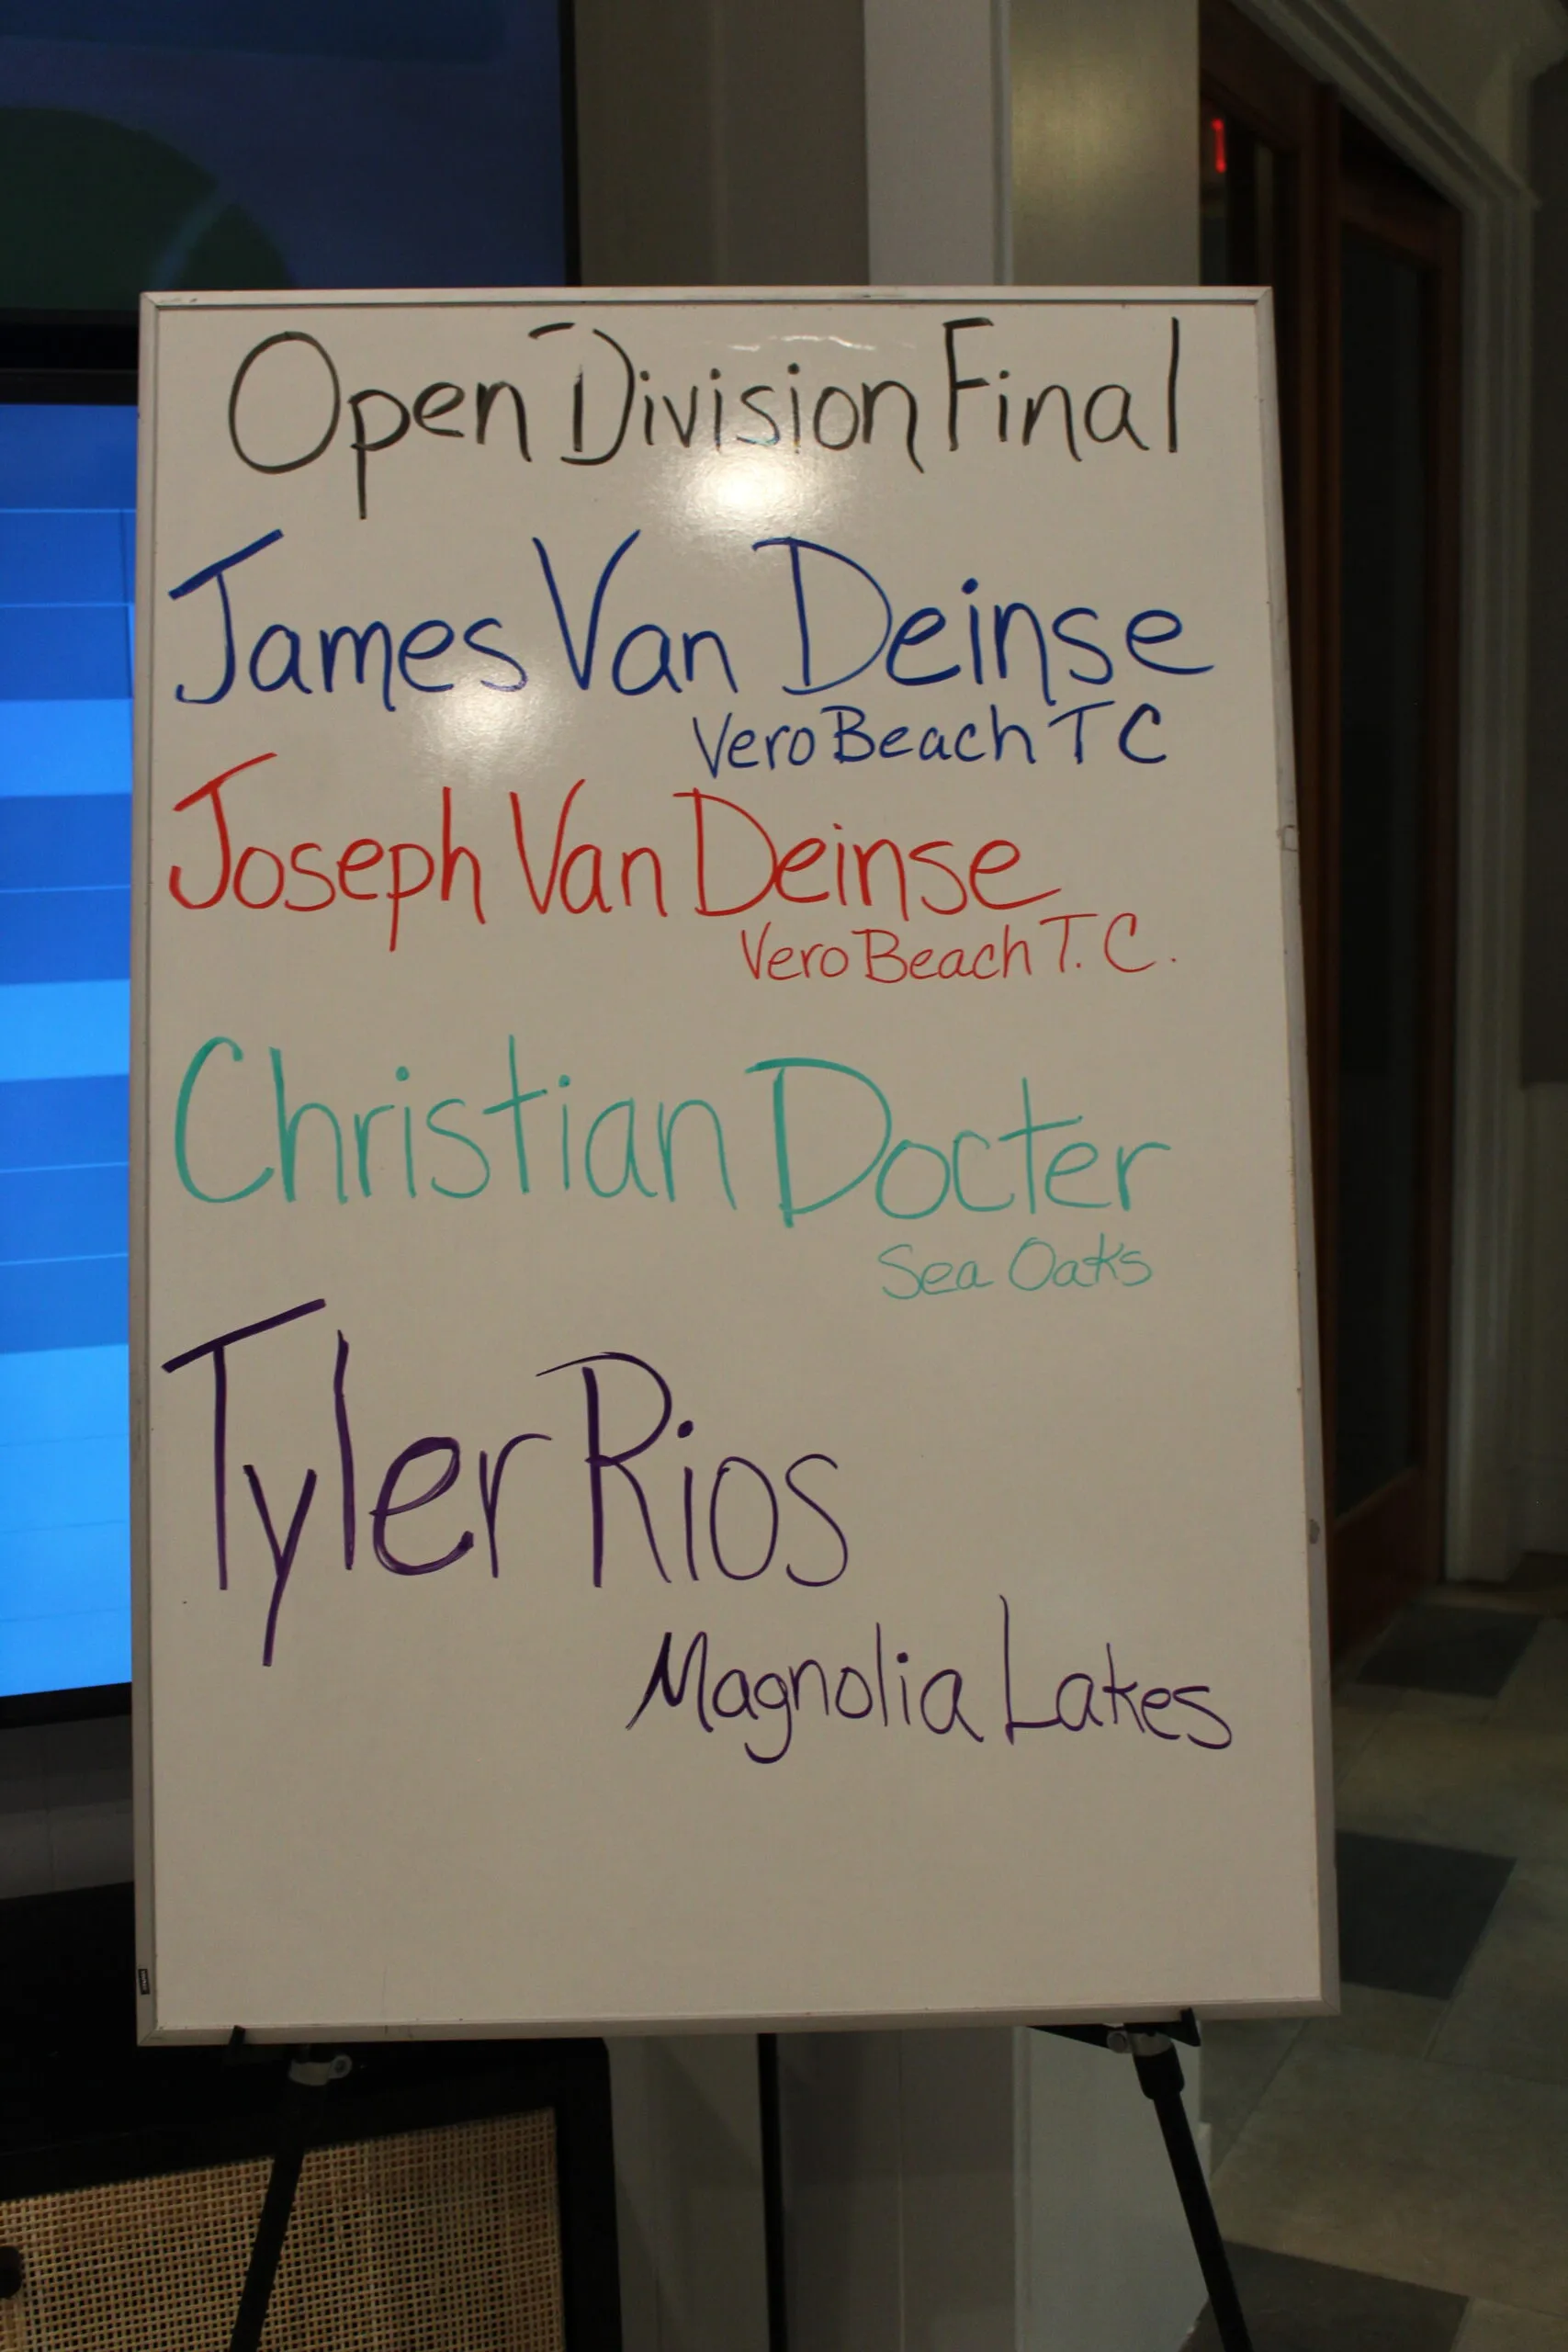 Open Division Final
James Van Deinse
Vero Beach TC
Joseph Van Deinse
Vero Beach T.C.
Christian Docter
Sea Oaks
Tyler Rios
Magnolia Lakes